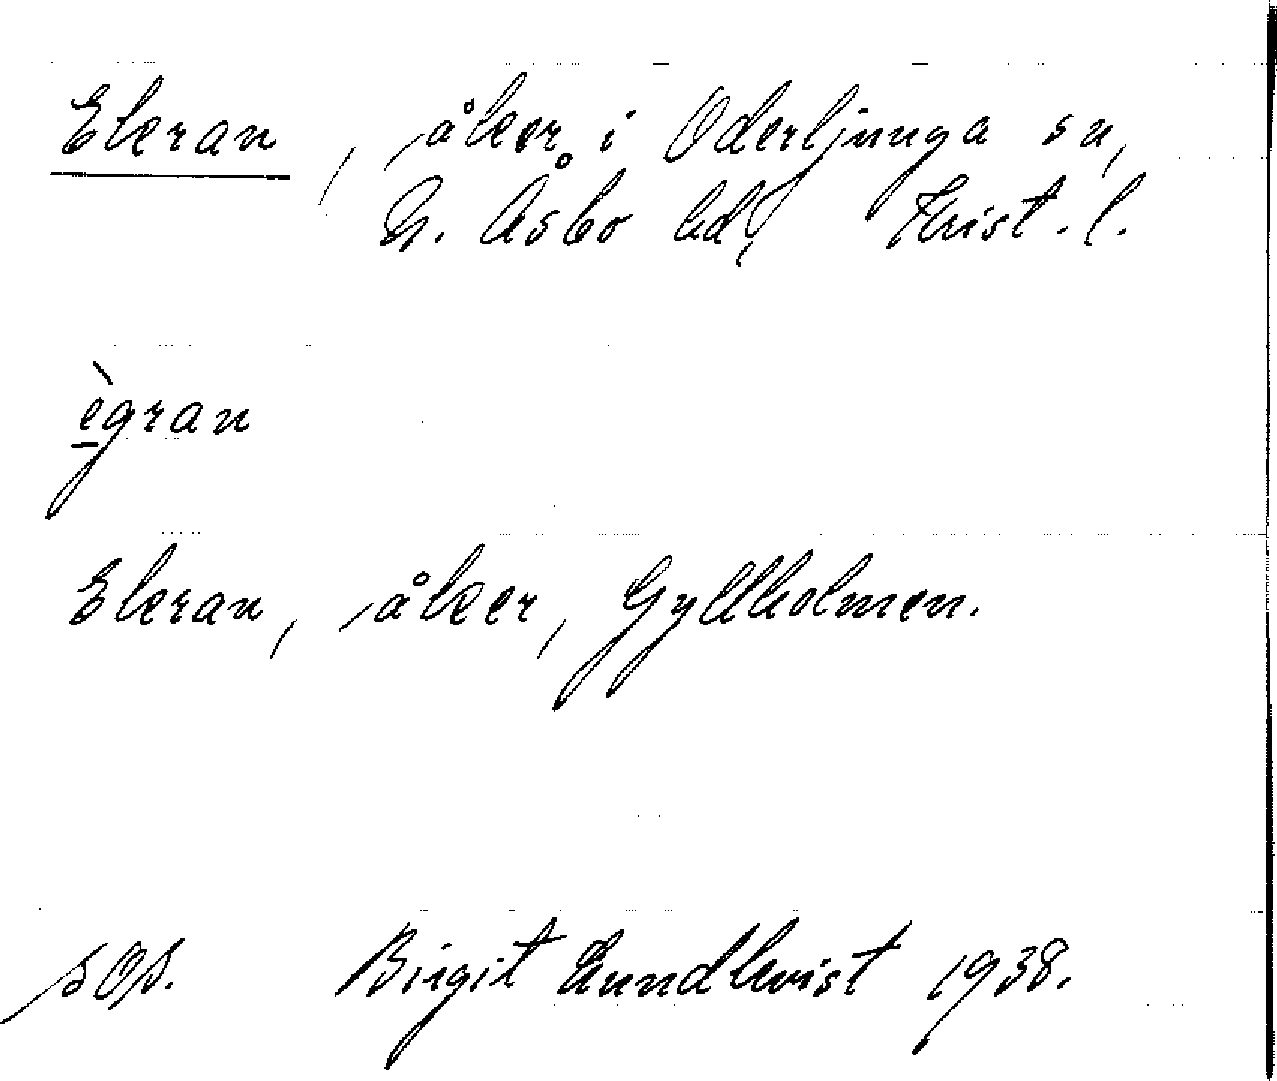 Ekran, åker i Oderljunga sn,
N. Åsbo hd, Krist. l.
ègran
Ekran, åker, Gyllholmen.
Birgit Lundkvist 1938.